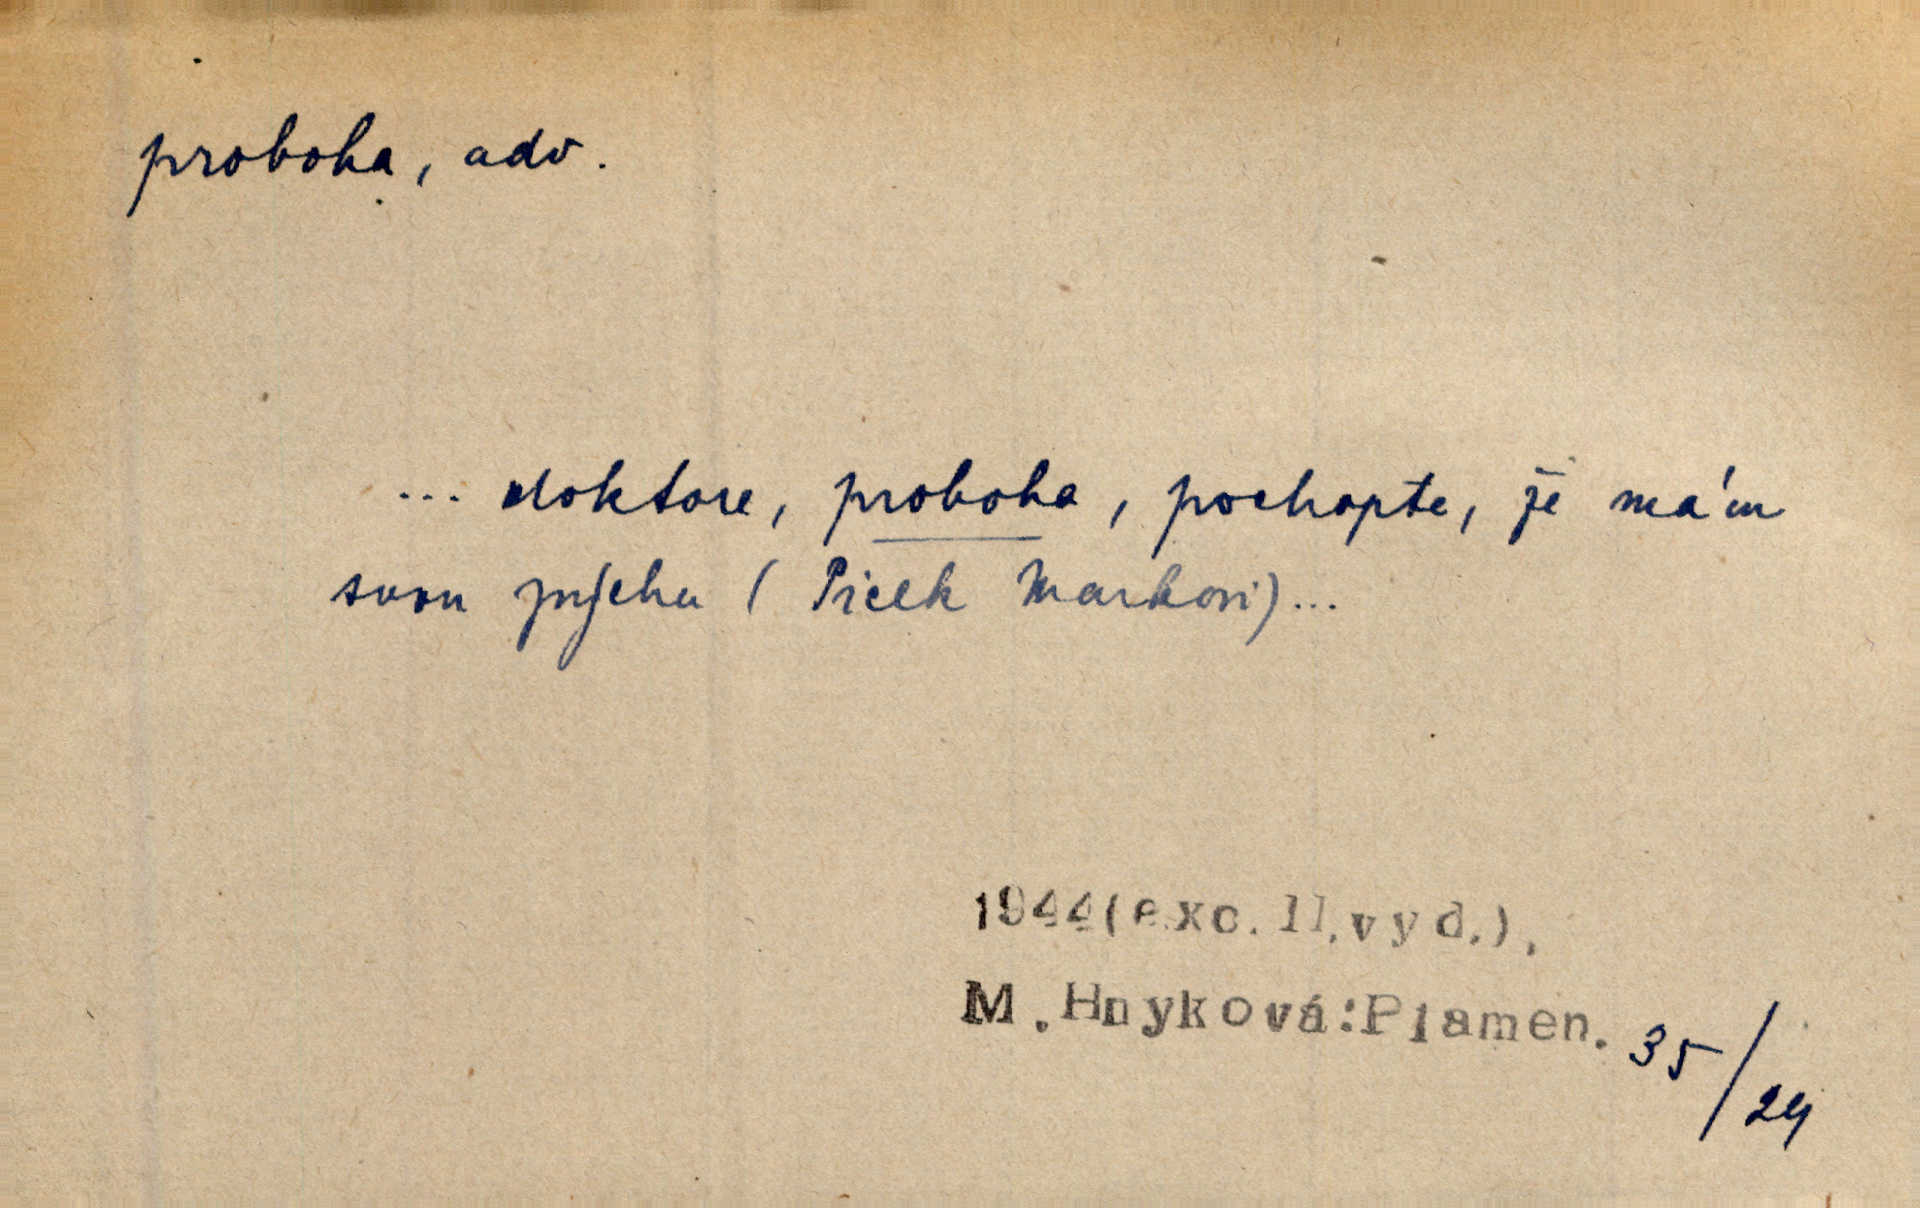 proboha, adv.
... doktore, proboha, pochopte, že mám
svou pýchu ( Picek Markovi)...
1944(exc.II.vyd.).
M.Hnyková:Plamen. 35/24